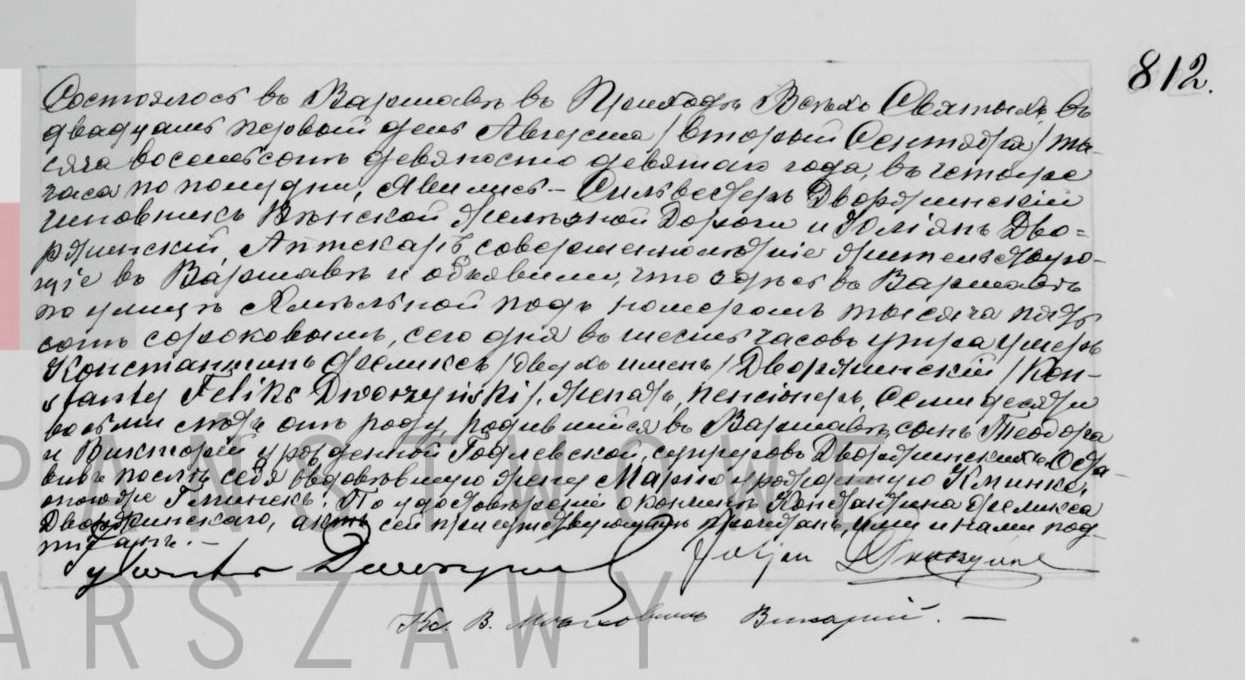 812.
Состоялось въ Варшавѣ въ Приходѣ Всѣхъ Святыхъ, въ
двадцать первый день Августа /второй Сентября/ ты-
сяча восемьсотъ девяносто девятаго года, въ четыре
часа по полудни, Явились – Сильвестеръ Дворжинскій
чиновникъ Вѣнской Желѣзной Дороги и Юліянъ Дво-
ржинскій, Аптекарь, совершеннолѣтніе жительствую-
щіе въ Варшавѣ и объявили, что здѣсь въ Варшавѣ
по улицѣ Хмѣльной подъ номеромъ тысяча пять
сотъ сороковымъ, сего дня въ шесть часовъ утра умеръ
Константинъ Феликсъ /двухъ именъ/ Дворжинскій /Kon-
stanty Feliks Dworzyński/, женатъ, пенсіонеръ, семидесяти
восьми лѣтъ отъ роду, родившійся въ Варшавѣ, сынъ Теодора
и Викторіи урожденной Годлевской, супруговъ Дворжинскихъ. Оста-
вивъ послѣ себя овдовѣвшую жену Марію урожденную
По удостовѣреніи о кончинѣ Константина Феликса
Дворжинскаго, актъ сей присутствующимъ прочитанъ, ими и нами под-
писанъ. –
Sylwester Dworzyński Juljan Dworzyński
Кс. В. Викарій. –
PAŃSTWOWE
WARSZAWY